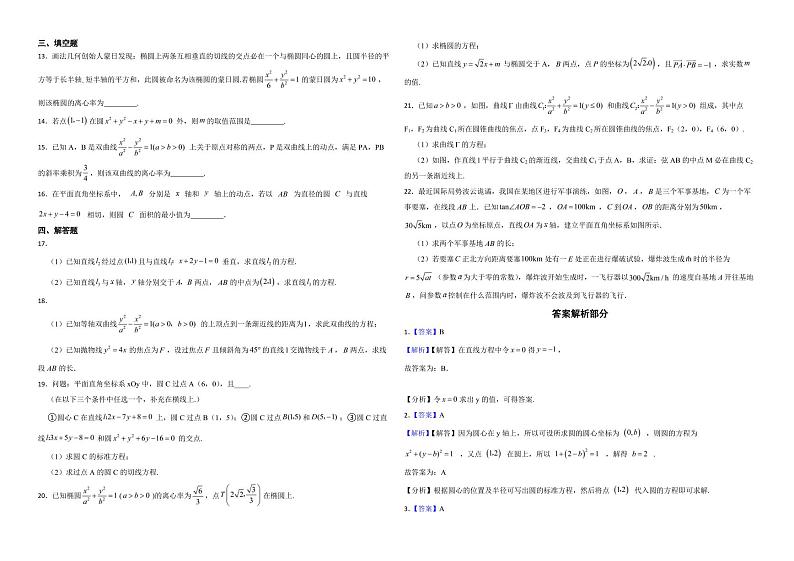 三、填空题
13．画法几何创始人蒙日发现：椭圆上两条互相垂直的切线的交点必在一个与椭圆同心的圆上，且圆半径的平
方等于长半轴.短半轴的平方和，此圆被命名为该椭圆的蒙日圆.若椭圆 x²/6 + y²/b² = 1 的蒙日圆为 x²+y²=10 ，
则该椭圆的离心率为_________.
14．若点(1,-1)在圆 x²+y²-x+y+m=0 外，则m的取值范围是_________.
15．已知 A，B 是双曲线 x²/a² - y²/b² = 1(a>b>0) 上关于原点对称的两点，P 是双曲线上的动点，满足 PA，PB
的斜率乘积为 3/4 ，则该双曲线的离心率为_________．
16．在平面直角坐标系中， A,B 分别是 x 轴和 y 轴上的动点，若以 AB 为直径的圆 C 与直线
2x+y-4=0 相切，则圆 C 面积的最小值为_________．
四、解答题
17．
（1）已知直线l₁经过点(1,1)且与直线l₂： x+2y-1=0 垂直，求直线l₁的方程.
（2）已知直线l₃与x轴，y轴分别交于A，B 两点， AB 的中点为(2,1)，求直线l₃的方程.
18．
（1）已知等轴双曲线 y²/a² - x²/b² = 1(a>0，b>0) 的上顶点到一条渐近线的距离为1，求此双曲线的方程；
（2）已知抛物线 y²=4x 的焦点为F，设过焦点F且倾斜角为45°的直线l交抛物线于A，B两点，求线
段AB的长.
19．问题：平面直角坐标系 xOy 中，圆 C 过点 A（6，0），且____.
（在以下三个条件中任选一个，补充在横线上.）
①圆心 C 在直线l:2x-7y+8=0 上，圆 C 过点 B（1，5）；②圆 C 过点B(1,5)和D(5,-1)；③圆 C 过直
线l:3x+5y-8=0 和圆 x²+y²+6y-16=0 的交点.
（1）求圆 C 的标准方程；
（2）求过点 A 的圆 C 的切线方程.
20．已知椭圆 x²/a² + y²/b² = 1（a>b>0）的离心率为 √6/3 ，点 T(2√2, √3/3) 在椭圆上.
（1）求椭圆的方程；
（2）已知直线 y=√2x+m 与椭圆交于 A，B 两点，点P的坐标为(2√2,0)，且 PA·PB=-1，求实数m
的值.
21．已知 a>b>0，如图，曲线 Γ 由曲线 C₁: x²/a² + y²/b² = 1(y≤0) 和曲线 C₂: x²/a² - y²/b² = 1(y>0) 组成，其中点
F₁，F₂为曲线 C₁所在圆锥曲线的焦点，点 F₃，F₄为曲线 C₂所在圆锥曲线的焦点，F₂（2，0），F₄（6，0）.
（1）求曲线 Γ 的方程；
（2）如图，作直线 l 平行于曲线 C₂的渐近线，交曲线 C₁于点 A，B，求证：弦 AB 的中点 M 必在曲线 C₂
的另一条渐近线上.
22．最近国际局势波云诡谲，我国在某地区进行军事演练，如图，O，A，B是三个军事基地，C为一个军
事要塞，在线段AB上．已知tan∠AOB=-2，OA=100km，C到OA，OB的距离分别为50km，
30√5km，以点O为坐标原点，直线OA为x轴，建立平面直角坐标系如图所示.
（1）求两个军事基地AB的长；
（2）若要塞C正北方向距离要塞100km处有一E处正在进行爆破试验，爆炸波生成t h时的半径为
r=5√at（参数a为大于零的常数），爆炸波开始生成时，一飞行器以300√2km/h的速度自基地A开往基地
B，问参数a控制在什么范围内时，爆炸波不会波及到飞行器的飞行.
答案解析部分
1.【答案】B
【解析】【解答】在直线方程中令x=0得y=-1，
故答案为：B.
【分析】令x=0求出 y 的值，可得答案.
2.【答案】A
【解析】【解答】因为圆心在 y 轴上，所以可设所求圆的圆心坐标为 (0,b) ，则圆的方程为
x²+(y-b)²=1 ，又点 (1,2) 在圆上，所以 1+(2-b)²=1 ，解得 b=2 .
故答案为：A
【分析】根据圆心的位置及半径可写出圆的标准方程，然后将点 (1,2) 代入圆的方程即可求解.
3.【答案】A